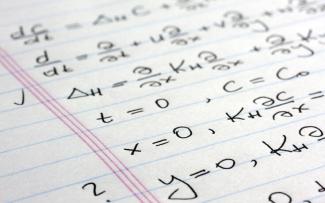 dC/dt = Δ_H C + ∂
d/dt = ∂/∂t + u ∂/∂x + v ∂/∂y
Δ_H = ∂/∂x K_H ∂/∂x + ∂/∂y K
t = 0 , C = C₀
x = 0 , K_H ∂C/∂x =
2. y = 0 , K_H ∂
0